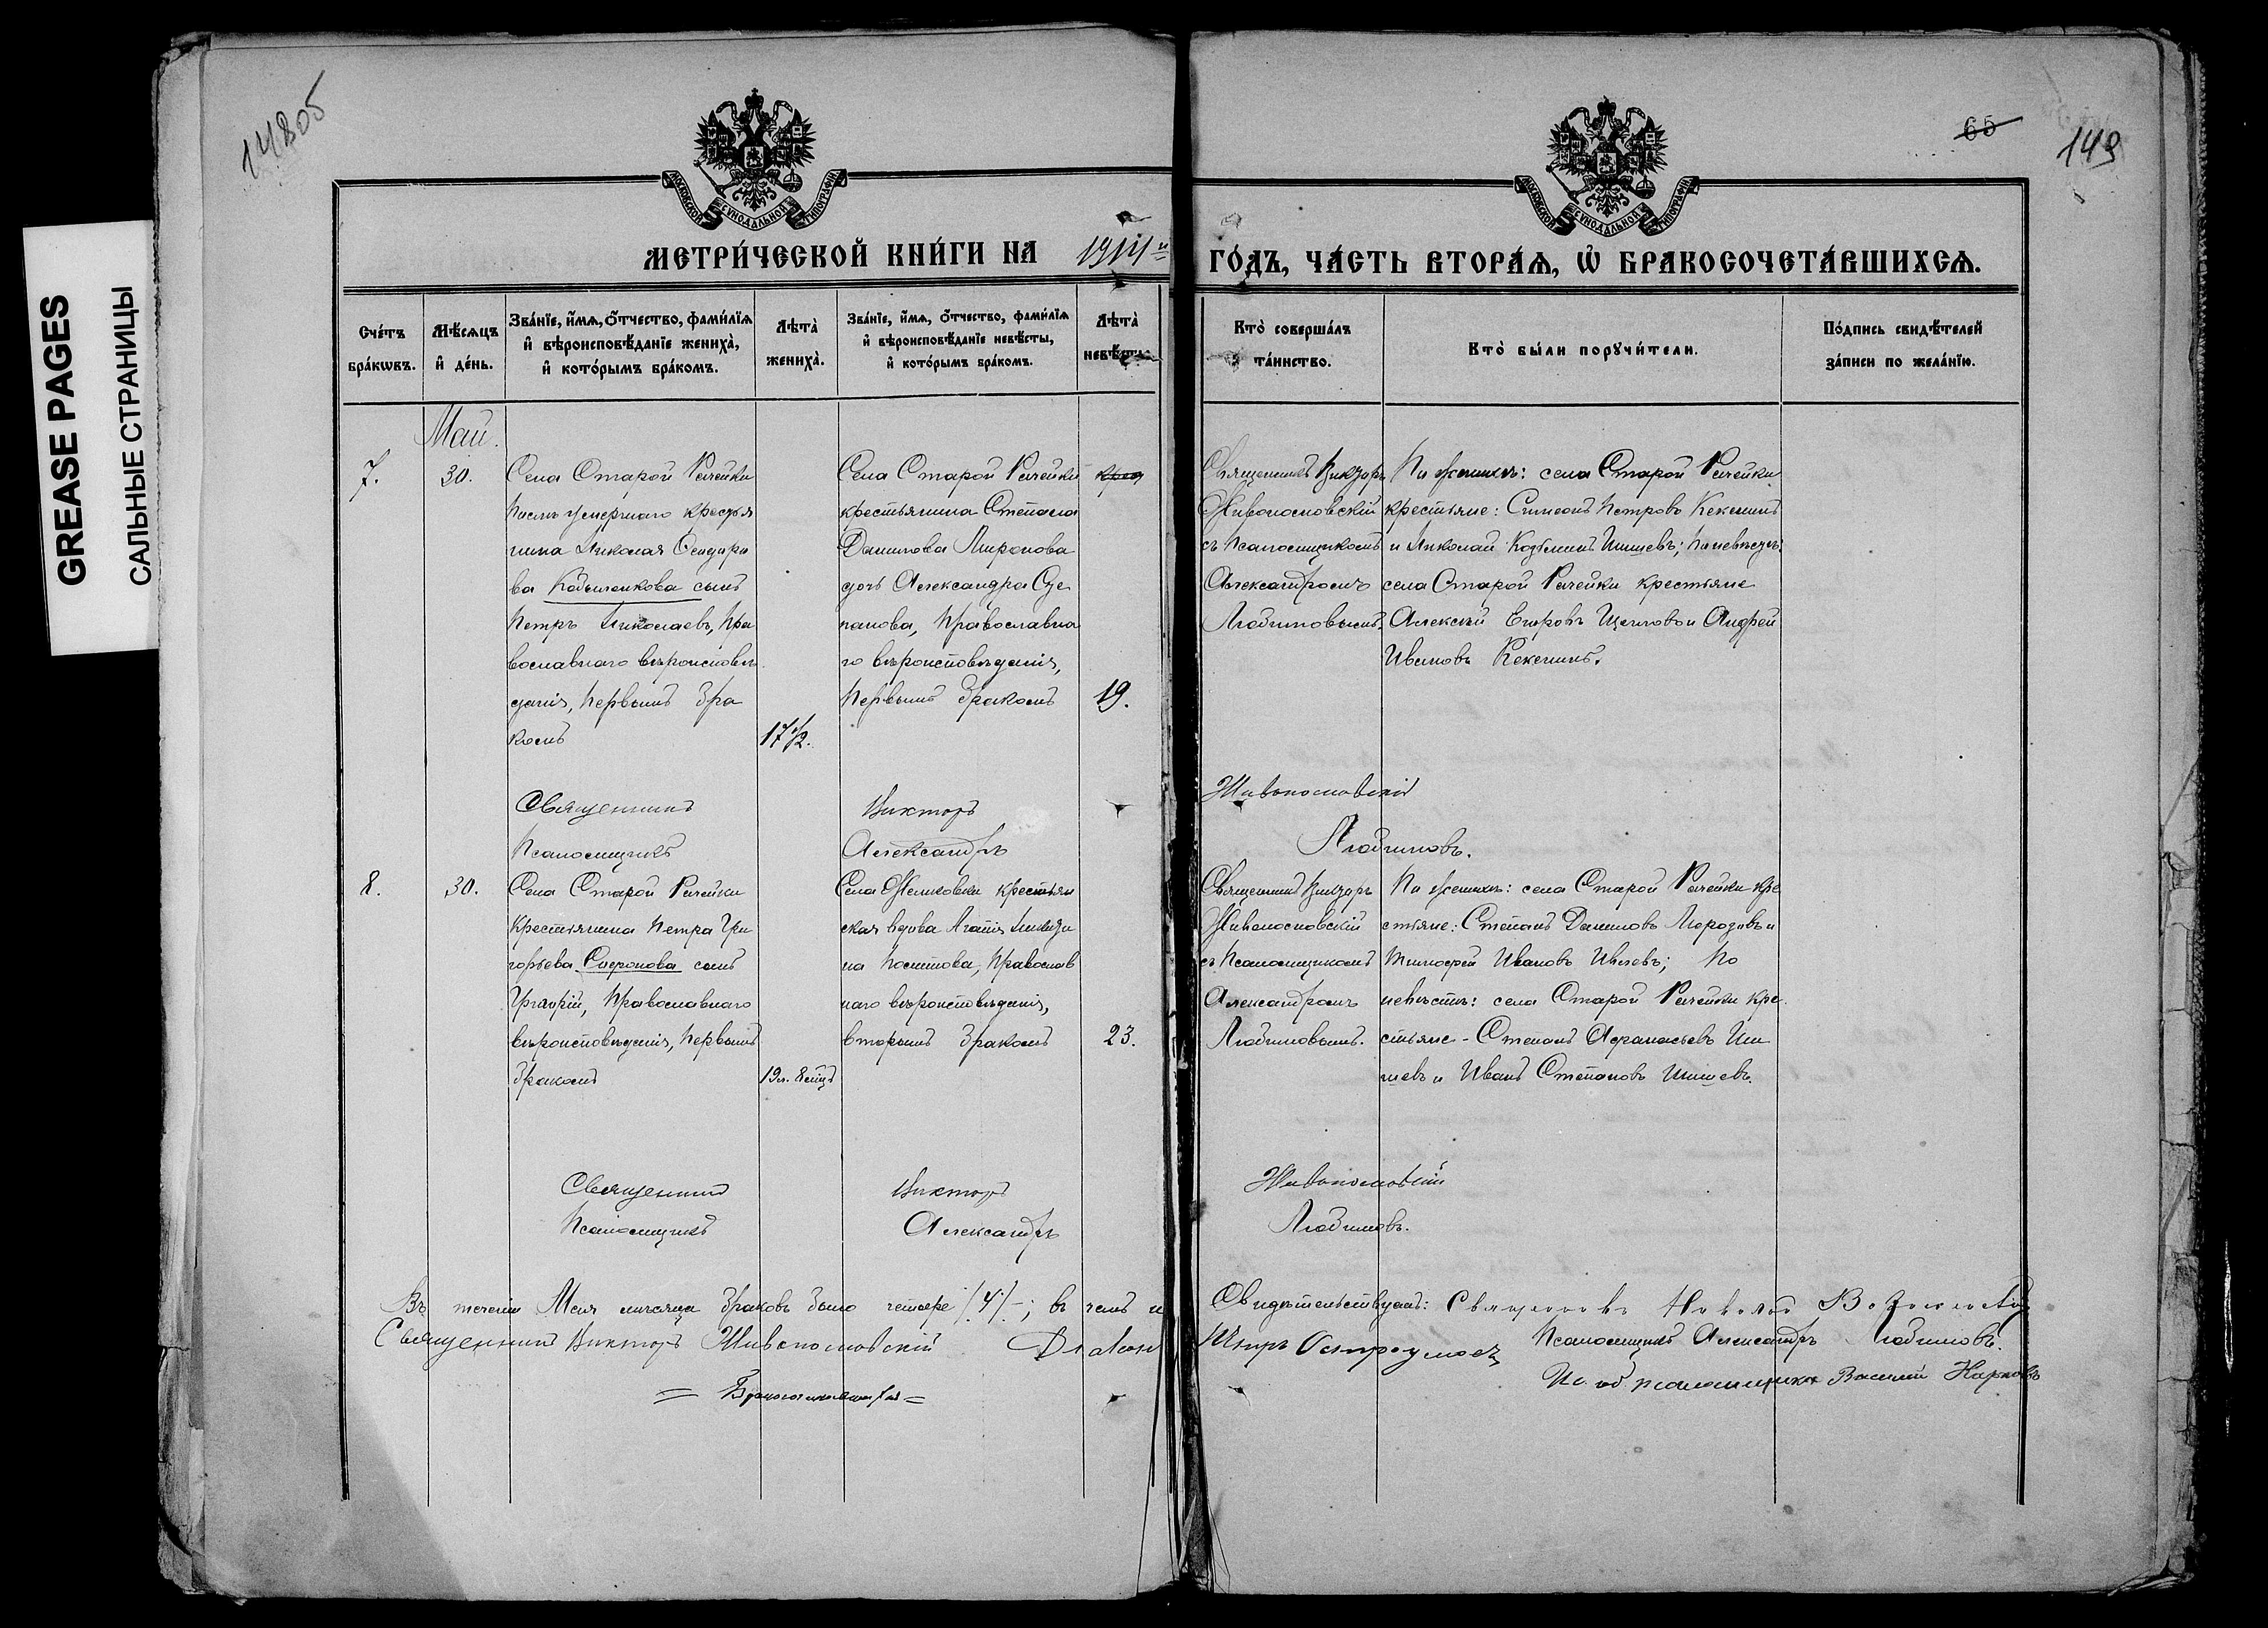 14805
GREASE PAGES
САЛЬНЫЕ СТРАНИЦЫ
65
149
МОСКОВСКОЙ СѴНОДАЛЬНОЙ ТИПОГРАФІИ
МОСКОВСКОЙ СѴНОДАЛЬНОЙ ТИПОГРАФІИ
МЕТРИ́ЧЕСКОЙ КНИ́ГИ НА 1914 й ГО́ДЪ, ЧА́СТЬ ВТОРА́Ѧ, Ѡ҆ БРАКОСОЧЕТА́ВШИХСѦ.
Сче́тъ бра́кѡвъ.
Мѣ́сѧцъ и҆ де́нь.
Зва́нїе, и҆́мѧ, ѻ҆́тчество, фами́лїѧ
и҆ вѣроисповѣ́данїе жениха̀,
и҆ кото́рымъ бра́комъ.
Лѣта̀ жениха̀.
Зва́нїе, и҆́мѧ, ѻ҆́тчество, фами́лїѧ
и҆ вѣроисповѣ́данїе невѣ́сты,
и҆ кото́рымъ бра́комъ.
Лѣта̀ невѣ́сты.
Кто̀ соверша́лъ та́инство.
Кто̀ бы́ли порꙋчи́тели.
По́дпись свидѣ́телей за́писи по жела́нїю.
Май.
7.
30.
Села Старой Рачейки
послѣ умершаго крестья
нина Николая
ва Кобыленкова сынъ
Петръ Николаевъ, пра
вославнаго вѣроисповѣ
данія, первымъ бра
комъ
17 1/2.
Села Старой Рачейки
крестьянина Степана
Данилова Миронова
дочь Александра Сте
панова, православна
го вѣроисповѣданія,
первымъ бракомъ
19.
Священникъ Викторъ
Живописновскій
съ псаломщикомъ
Александромъ
Любимовымъ.
По женихѣ: села Старой Рачейки
крестьяне: Симеонъ Петровъ Кекшинъ
и Николай Шишевъ; по невѣстѣ:
села Старой Рачейки крестьяне
Алексѣй Егоровъ Щегловъ и Андрей
Ивановъ Кекшинъ.
Священникъ Викторъ Живописновскій
Псаломщикъ Александръ Любимовъ.
8.
30.
Села Старой Рачейки
крестьянина Петра Гри
горьева Сафронова сынъ
Григорій, православнаго
вѣроисповѣданія, первымъ
бракомъ
19 л. 8 мѣц
Села крестьян
ская вдова Агапія Никити
на православ
наго вѣроисповѣданія,
вторымъ бракомъ
23.
Священникъ Викторъ
Живописновскій
съ псаломщикомъ
Александромъ
Любимовымъ.
По женихѣ: села Старой Рачейки кре
стьяне: Степанъ Даниловъ и
Тимофей Ивановъ Ивлевъ; По
невѣстѣ: села Старой Рачейки кре
стьяне - Степанъ Афанасьевъ Ши
шевъ и Иванъ Степановъ Шишевъ.
Священникъ Викторъ Живописновскій
Псаломщикъ Александръ Любимовъ.
Въ теченіи Мая мѣсяца браковъ было четыре /4/-; въ чемъ и Свидѣтельствуемъ: Священникъ Николай
Священникъ Викторъ Живописновскій Діаконъ Петръ Остроумовъ Псаломщикъ Александръ Любимовъ.
Ис. об. псаломщика Василій